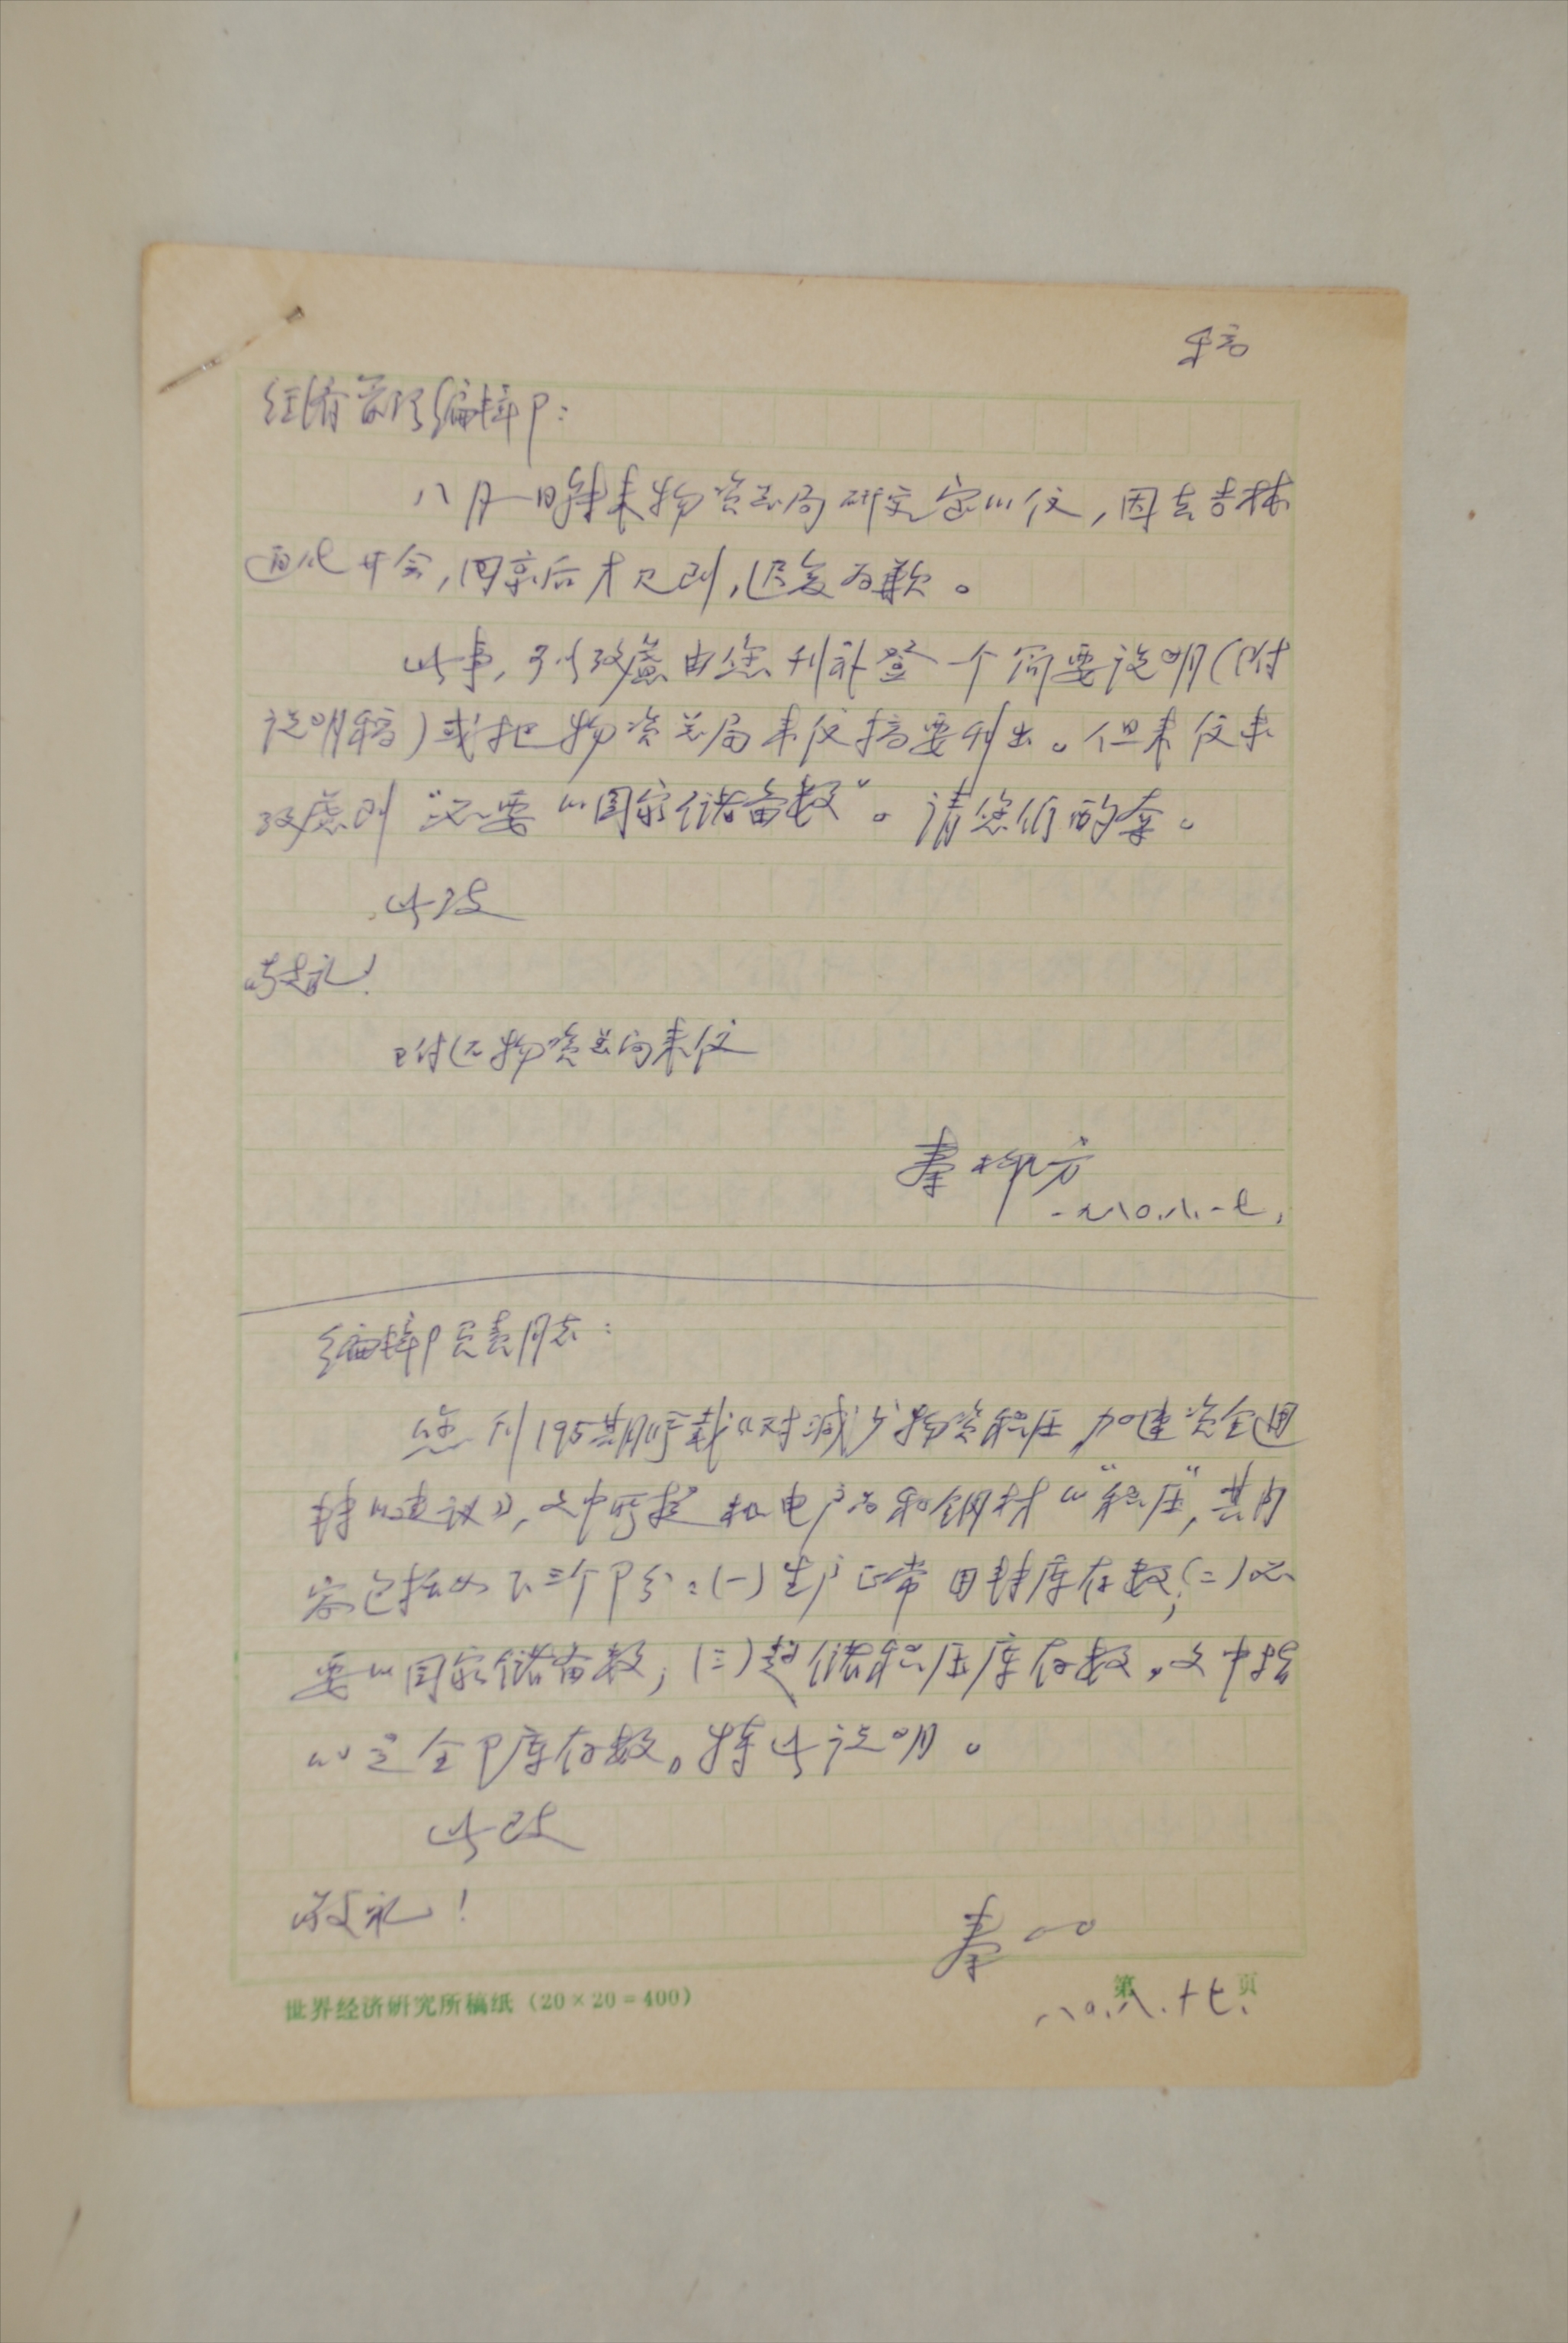 稿
经济管理编辑部：
八月一日转来物资总局研究室的信，因去吉林
通化开会，回京后才见到，迟复为歉。
此事，可以考虑由您刊补登一个简要说明（附
说明稿）或把物资总局来信摘要刊出。但来信未
考虑到“必要的国家储备数”。请您们酌夺。
此致
敬礼！
附还物资总局来信
秦柳方
一九八〇.八.一七.
编辑部负责同志：
您刊195期所载《对减少物资积压，加速资金周
转的建议》，文中所提机电产品和钢材的“积压”，其内
容包括如下三个部分：（一）生产正常周转库存数；（二）必
要的国家储备数；（三）超储积压库存数。文中指
的是全部库存数。特此说明。
此致
敬礼！
秦
八〇.八.十七.
世界经济研究所稿纸（20×20=400）
第 页